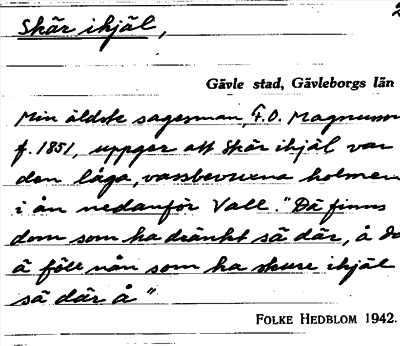 Skär ihjäl,
Gävle stad, Gävleborgs län
Min äldste sagesman, F.O. Magnusson
f. 1851, uppger att Skär ihjäl var
den låga, vassbevuxna holmen
i ån nedanför Vall. "Dä finns
dom som ha dränkt sä där, å då
ä före nån som ha skure ihjäl
sä där å"
FOLKE HEDBLOM 1942.